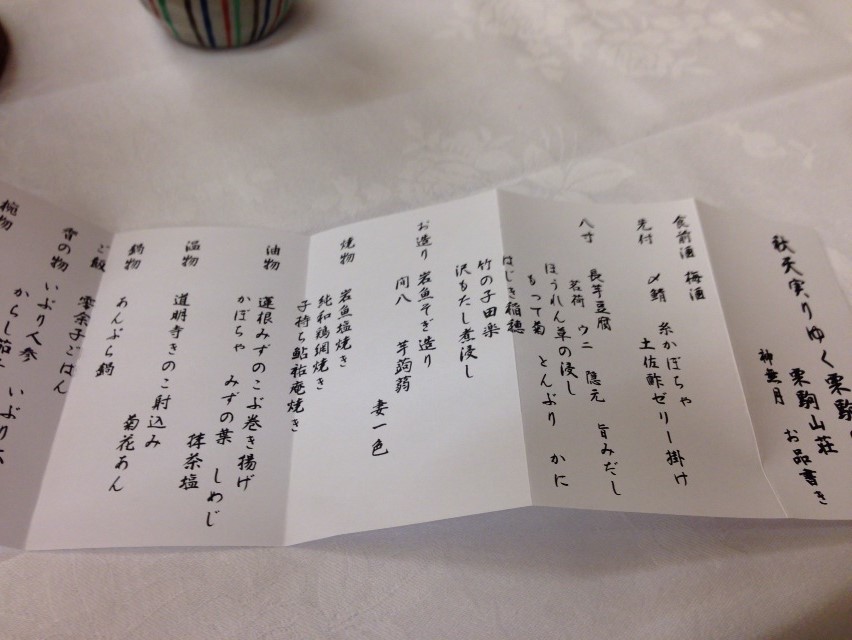 秋天実りゆく栗駒
栗駒山荘
お品書き
神無月
食前酒 梅酒
先付 〆鯖 糸かぼちゃ
土佐酢ゼリー掛け
八寸 長芋豆腐
茗荷 ウニ 隠元 旨みだし
ほうれん草の浸し
もって菊 とんぶり かに
はじき稲穂
竹の子田楽
沢もたし煮浸し
お造り 岩魚そぎ造り
間八 芋蒟蒻
妻一色
焼物 岩魚塩焼き
純和鶏網焼き
子持ち鮎祐庵焼き
油物 蓮根みずのこぶ巻き揚げ
かぼちゃ みずの葉 しめじ
抹茶塩
温物 道明寺きのこ射込み
菊花あん
鍋物 あんぷら鍋
ご飯 零余子ごはん
香の物 いぶり人参
からし茄子 いぶり大
椀物